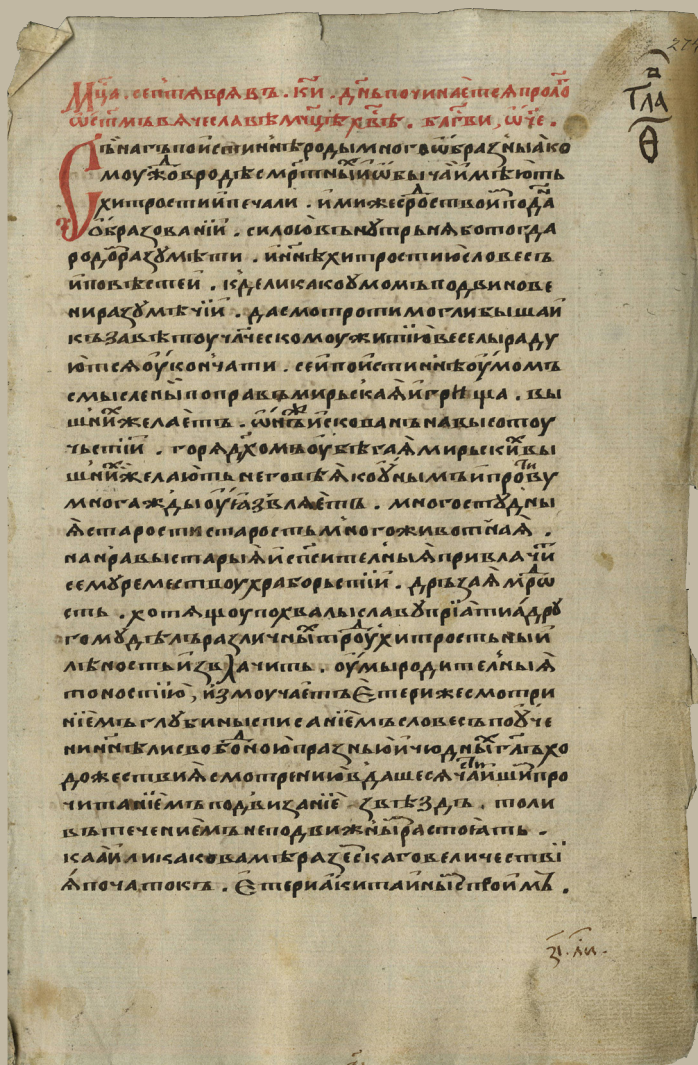 274
Мц҃а. септября въ. кн҃и. дн҃ь починаетсяпроло
ѡст҃мъвячеславѣмч҃нцѣхв҃ѣ. благ҃ви, ѡч҃е.
гла
ѳ
Сѣнагъпоистиннѣродымногоѡбразныако
моужовродѣсмр҃тныиѡбычаиимѣють
хитростиипечали. имижесродствоиподн҃а
ѡбразованїи. силоювънутрьняботогда
родоразумѣти. иннѣхитростиюсловесъ
иповѣстеи. кделикакоумомъподвинове
ниразумѣчїи. дасмотротимоглибышаи
къзавѣтоучл҃ческомоужитїювеселыраду
ютсяоуконъчати. сеипоистиннѣоумомъ
смысленыпоправъмирьскаяигрища. вы
шнихжелаетъ. ѡнѣхжискованънавысотоу
чьстїи. горядх҃омъоубѣгаямирьскихвы
шнихжелаютьнеговѣякоунымъипротиву
многаждыоуязвляетъ. многостудны
ястаростистаростьмногоживотная.
нанравыстарыяисп҃сителныяпривлачїи
семуремествоухраборьстїи. дрьзаямр҃дѡ
сть. хотящоупохвалыславупрїатиадру
гомудѣлъразличныхтрудоухитростьныи
лѣностьизвлачить. оумыродителныя
тоностїю, измоучаетъетерижесмотри
нїемъглубиныписанїемъсловесъпоуче
нинѣлисвободноюпразньюичюдныхгл҃ъхо
дожествиясмотрениювдашесячаишипро
читанїемъподвизанїе звѣздъ. толи
вътечениемънеподвижныирастоятъ.
каяилikaковамѣразес҃каговеличествї
япочатокъ. етериакитаиныспоимъ.